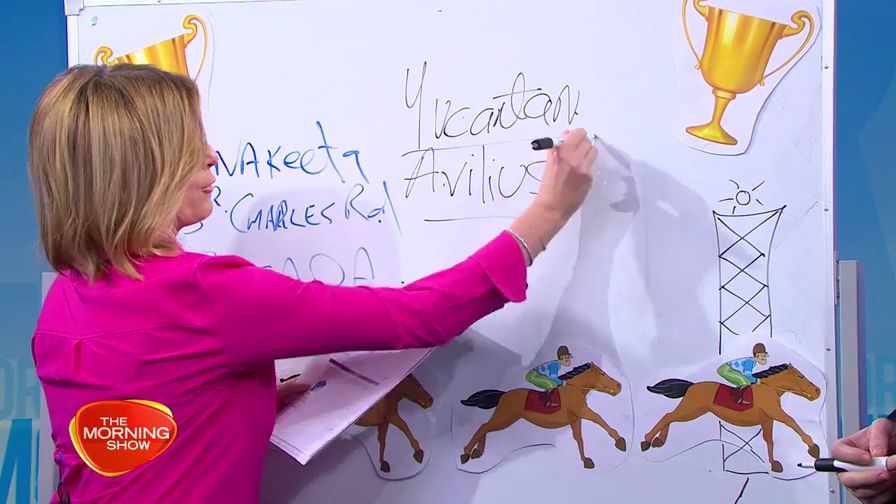 Yucatan
NAKeeta
Avilius
CHARLES Rd
THE
MORNING
SHOW